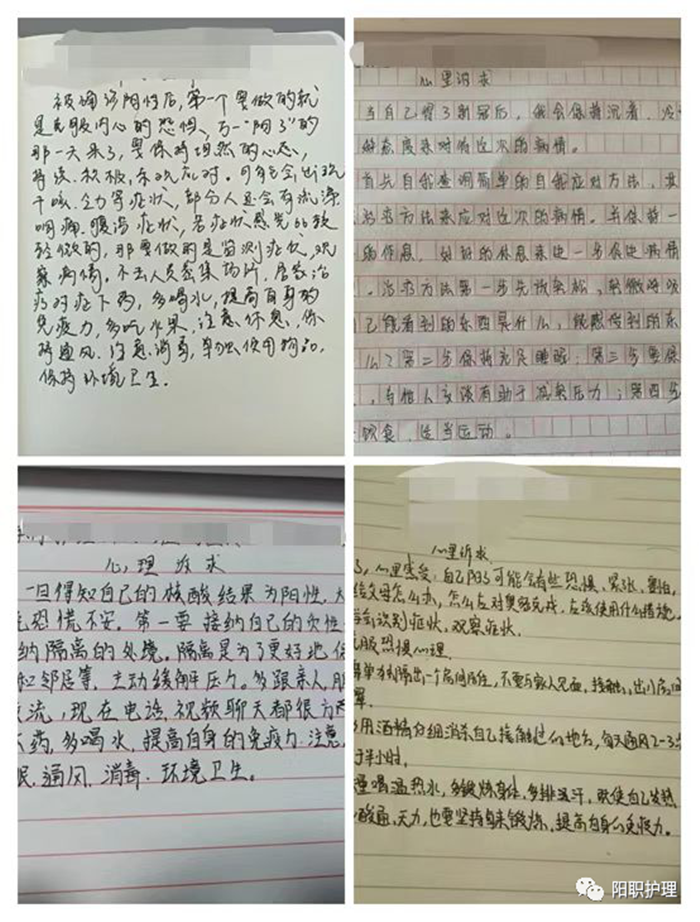 被确诊阳性后,第一个要做的就
是克服内心的恐惧,万一“阳了”的
那一天来了,要保持坦然的心态,
持续、积极,乐观应对。可能会出现
干咳、乏力等症状,部分人还会有流涕
咽痛、腹泻症状,若症状感觉比较
轻微的,那要做的是监测症状,观
察病情。不去人员密集场所,居家治
疗对症下药,多喝水,提高自身的
免疫力,多吃水果,注意休息,保
持通风、注意消毒,单独使用物品,
保持环境卫生.
心里诉求
当自己得了新冠后,我会保持沉着、冷
静态度来对待这次的病情。
首先自我查询简单的自我应对方法,
治疗方法来应对这次的病情。并保持一
的休息,
治疗方法第一步先放轻松,
己能看到的东西是什么,能感受到的东
么?第二步保持充足睡眠;第三步要保
,与他人交谈有助于减轻压力;第四步
饮食,适当运动。
心理诉求
一旦得知自己的核酸结果为阳性,
恐慌不安。第一要接纳自己的
纳隔离的处境。隔离是为了更好地保
和邻居等,主动缓解压力。多跟亲人朋
流,现在电话、视频聊天都很方
药,多喝水,提高自身的免疫力.注意
眠.通风、消毒.环境卫生。
心里诉求
心里感受:自己阳了可能会有些恐惧、紧张、害怕,
怎么办,怎么应对
识别症状,观察症状.
克服恐惧心理.
单独隔出一个房间居住,不要与家人见面,接触,出门
罩.
用酒精仔细消杀自己接触过的地方,每天通风2-3
于半小时.
喝温热水,多锻炼身体,多排湿汗,
酸痛、乏力,也要坚持起来锻炼,提高自身的免疫力。
阳职护理